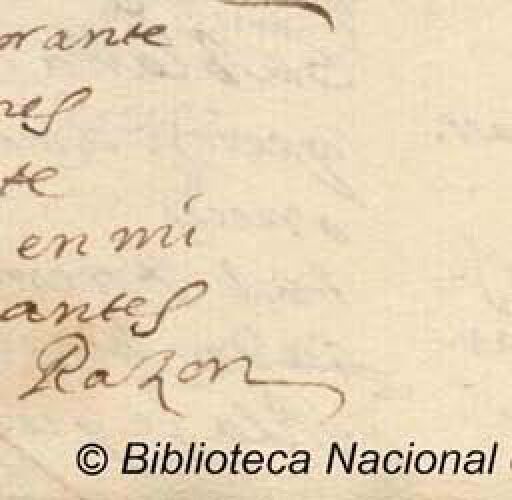 orante
nes
te
en mi
antes
Razon
© Biblioteca Nacional